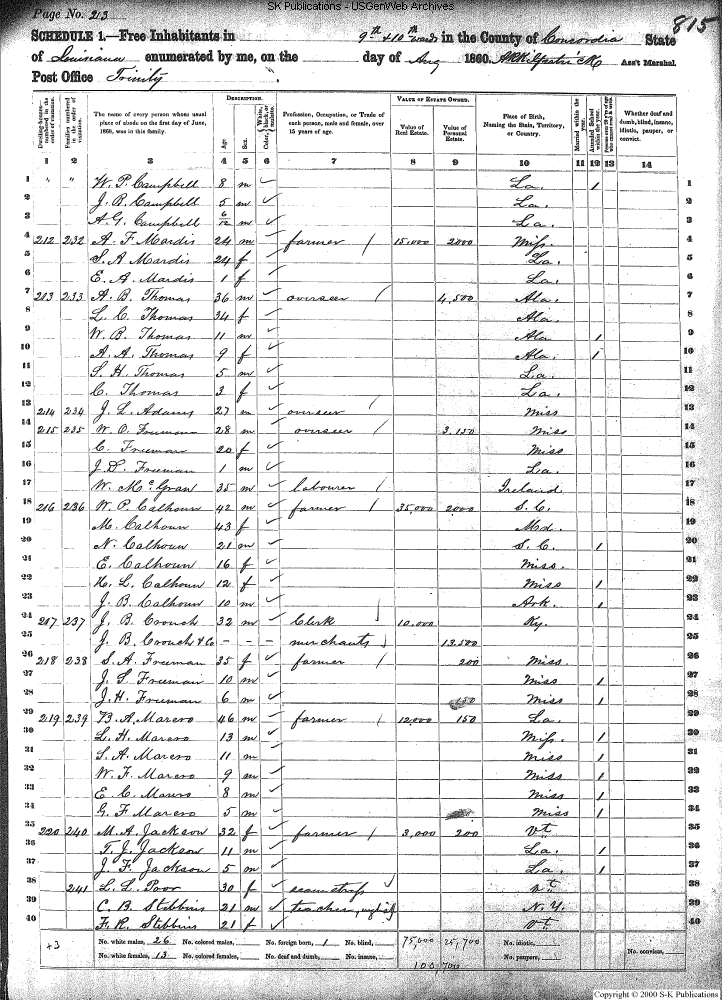 SK Publications - USGenWeb Archives
Page No. 213
815
SCHEDULE 1.—Free Inhabitants in 9th & 10th wards in the County of Concordia State
of Louisiana enumerated by me, on the day of Aug 1860. Ass't Marshal.
Post Office Trinity
Dwelling-houses—numbered in the order of visitation.
Families numbered in the order of visitation.
The name of every person whose usual place of abode on the first day of June, 1860, was in this family.
DESCRIPTION.
Age
Sex
Color, White, black, or mulatto.
Profession, Occupation, or Trade of each person, male and female, over 15 years of age.
VALUE OF ESTATE OWNED.
Value of Real Estate.
Value of Personal Estate.
Place of Birth, Naming the State, Territory, or Country.
Married within the year.
Attended School within the year.
Whether deaf and dumb, blind, insane, idiotic, pauper, or convict.
1 2 3 4 5 6 7 8 9 10 11 12 13 14
1 " " W. P. Campbell 8 m ✓ La. 1 1
2 J. R. Campbell 5 m ✓ La. 2
3 A. G. Campbell 6/12 m ✓ La. 3
4 212 232 A. F. Mardis 24 m ✓ farmer / 15,000 2000 Miss. 4
5 S. A. Mardis 24 f ✓ La. 5
6 E. A. Mardis 1 f ✓ La. 6
7 213 233 A. B. Thomas 36 m ✓ overseer / 4,500 Ala. 7
8 L. C. Thomas 34 f ✓ Ala. 8
9 W. B. Thomas 11 m ✓ Ala 1 9
10 A. A. Thomas 9 f ✓ Ala. 1 10
11 S. H. Thomas 5 m ✓ La. 11
12 C. Thomas 3 f ✓ La. 12
13 214 234 J. L. Adams 27 m ✓ overseer / Miss 13
14 215 235 W. O. Freeman 28 m ✓ overseer / 3,150 Miss 14
15 C. Freeman 20 f ✓ Miss 15
16 J. D. Freeman 1 m ✓ La. 16
17 W. McGran 35 m ✓ labourer / Ireland 17
18 216 236 W. P. Calhoun 42 m ✓ farmer / 35,000 2000 S. C. 18
19 M. Calhoun 43 f ✓ Md. 19
20 N. Calhoun 21 m ✓ S. C. 1 20
21 E. Calhoun 16 f ✓ Miss. 21
22 H. L. Calhoun 12 f ✓ Miss 1 22
23 J. B. Calhoun 10 m ✓ Ark. 1 23
24 217 237 J. B. Crouch 32 m ✓ Clerk 10,000 Ky. 24
25 J. B. Crouch & Co - - - merchants 13,500 25
26 218 238 S. A. Freeman 35 f ✓ farmer / 200 Miss. 26
27 J. S. Freeman 10 m ✓ Miss 1 27
28 J. H. Freeman 6 m ✓ Miss 1 28
29 219 239 B. A. Marero 46 m ✓ farmer / 12,000 150 La. 29
30 L. H. Marero 13 m ✓ Miss. 1 30
31 S. A. Marero 11 m ✓ Miss 1 31
32 W. F. Marero 9 m ✓ Miss 1 32
33 E. C. Marero 8 m ✓ Miss 1 33
34 G. F. Marero 5 m ✓ Miss 1 34
35 220 240 M. A. Jackson 32 f ✓ farmer / 3,000 200 Vt 35
36 T. J. Jackson 11 m ✓ La. 1 36
37 J. F. Jackson 5 m ✓ La. 1 37
38 241 L. L. Poor 30 f ✓ seamstress Vt. 38
39 C. B. Stebbins 21 m ✓ teacher, N.Y. 39
40 F. R. Stebbins 21 f ✓ Vt. 40
+3 No. white males, 26 No. colored males, No. foreign born, 1 No. blind, 75,000 25,700 No. idiotic,
No. white females, 13 No. colored females, No. deaf and dumb, No. insane, 100,700 No. paupers, No. convicts,
Copyright © 2000 S-K Publications